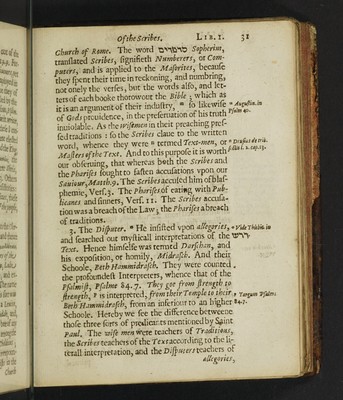 Of the Scribes. LIB. I. 31
Church of Rome. The word סופרים Sopherim,
translated Scribes, signifieth Numberers, or Com-
puters, and is applied to the Masorites, because
they spent their time in reckoning, and numbring,
not onely the verses, but the words also, and let-
ters of each booke thorowout the Bible; which as
it is an argument of their industry, so likewise
of Gods prouidence, in the preseruation of his truth
inuiolable. As the Wisemen in their preaching pres-
sed traditions: so the Scribes claue to the written
word, whence they were termed Text-men, or
Masters of the Text. And to this purpose it is worth
our obseruing, that whereas both the Scribes and
the Pharises sought to fasten accusations vpon our
Sauiour, Matth. 9. The Scribes accused him of blas-
phemie, Vers. 3. The Pharises of eating with Pub-
licanes and sinners, Vers. 11. The Scribes accusa-
tion was a breach of the Law; the Pharises a breach
of traditions.
3. The Disputer. He insisted vpon allegories,
and searched out mysticall interpretations of the
Text. Hence himselfe was termed Darschan, and
his exposition, or homily, Midrasch. And their
Schoole, Beth Hammidrasch. They were counted
the profoundest Interpreters, whence that of the
Psalmist, Psalme 84. 7. They goe from strength to
strength, is interpreted, from their Temple to their
Beth Hammidrasch, from an inferiour to an higher
Schoole. Hereby we see the difference betweene
those three sorts of predicants mentioned by Saint
Paul. The wise men were teachers of Traditions,
the Scribes teachers of the Text according to the li-
terall interpretation, and the Disputers teachers of
allegories,
Augustin. in
Psalm 40.
Drusius de trib.
sectis l. 2. cap. 13.
Vide Thisbit. in
דרש
Targum Psalm.
84. 7.